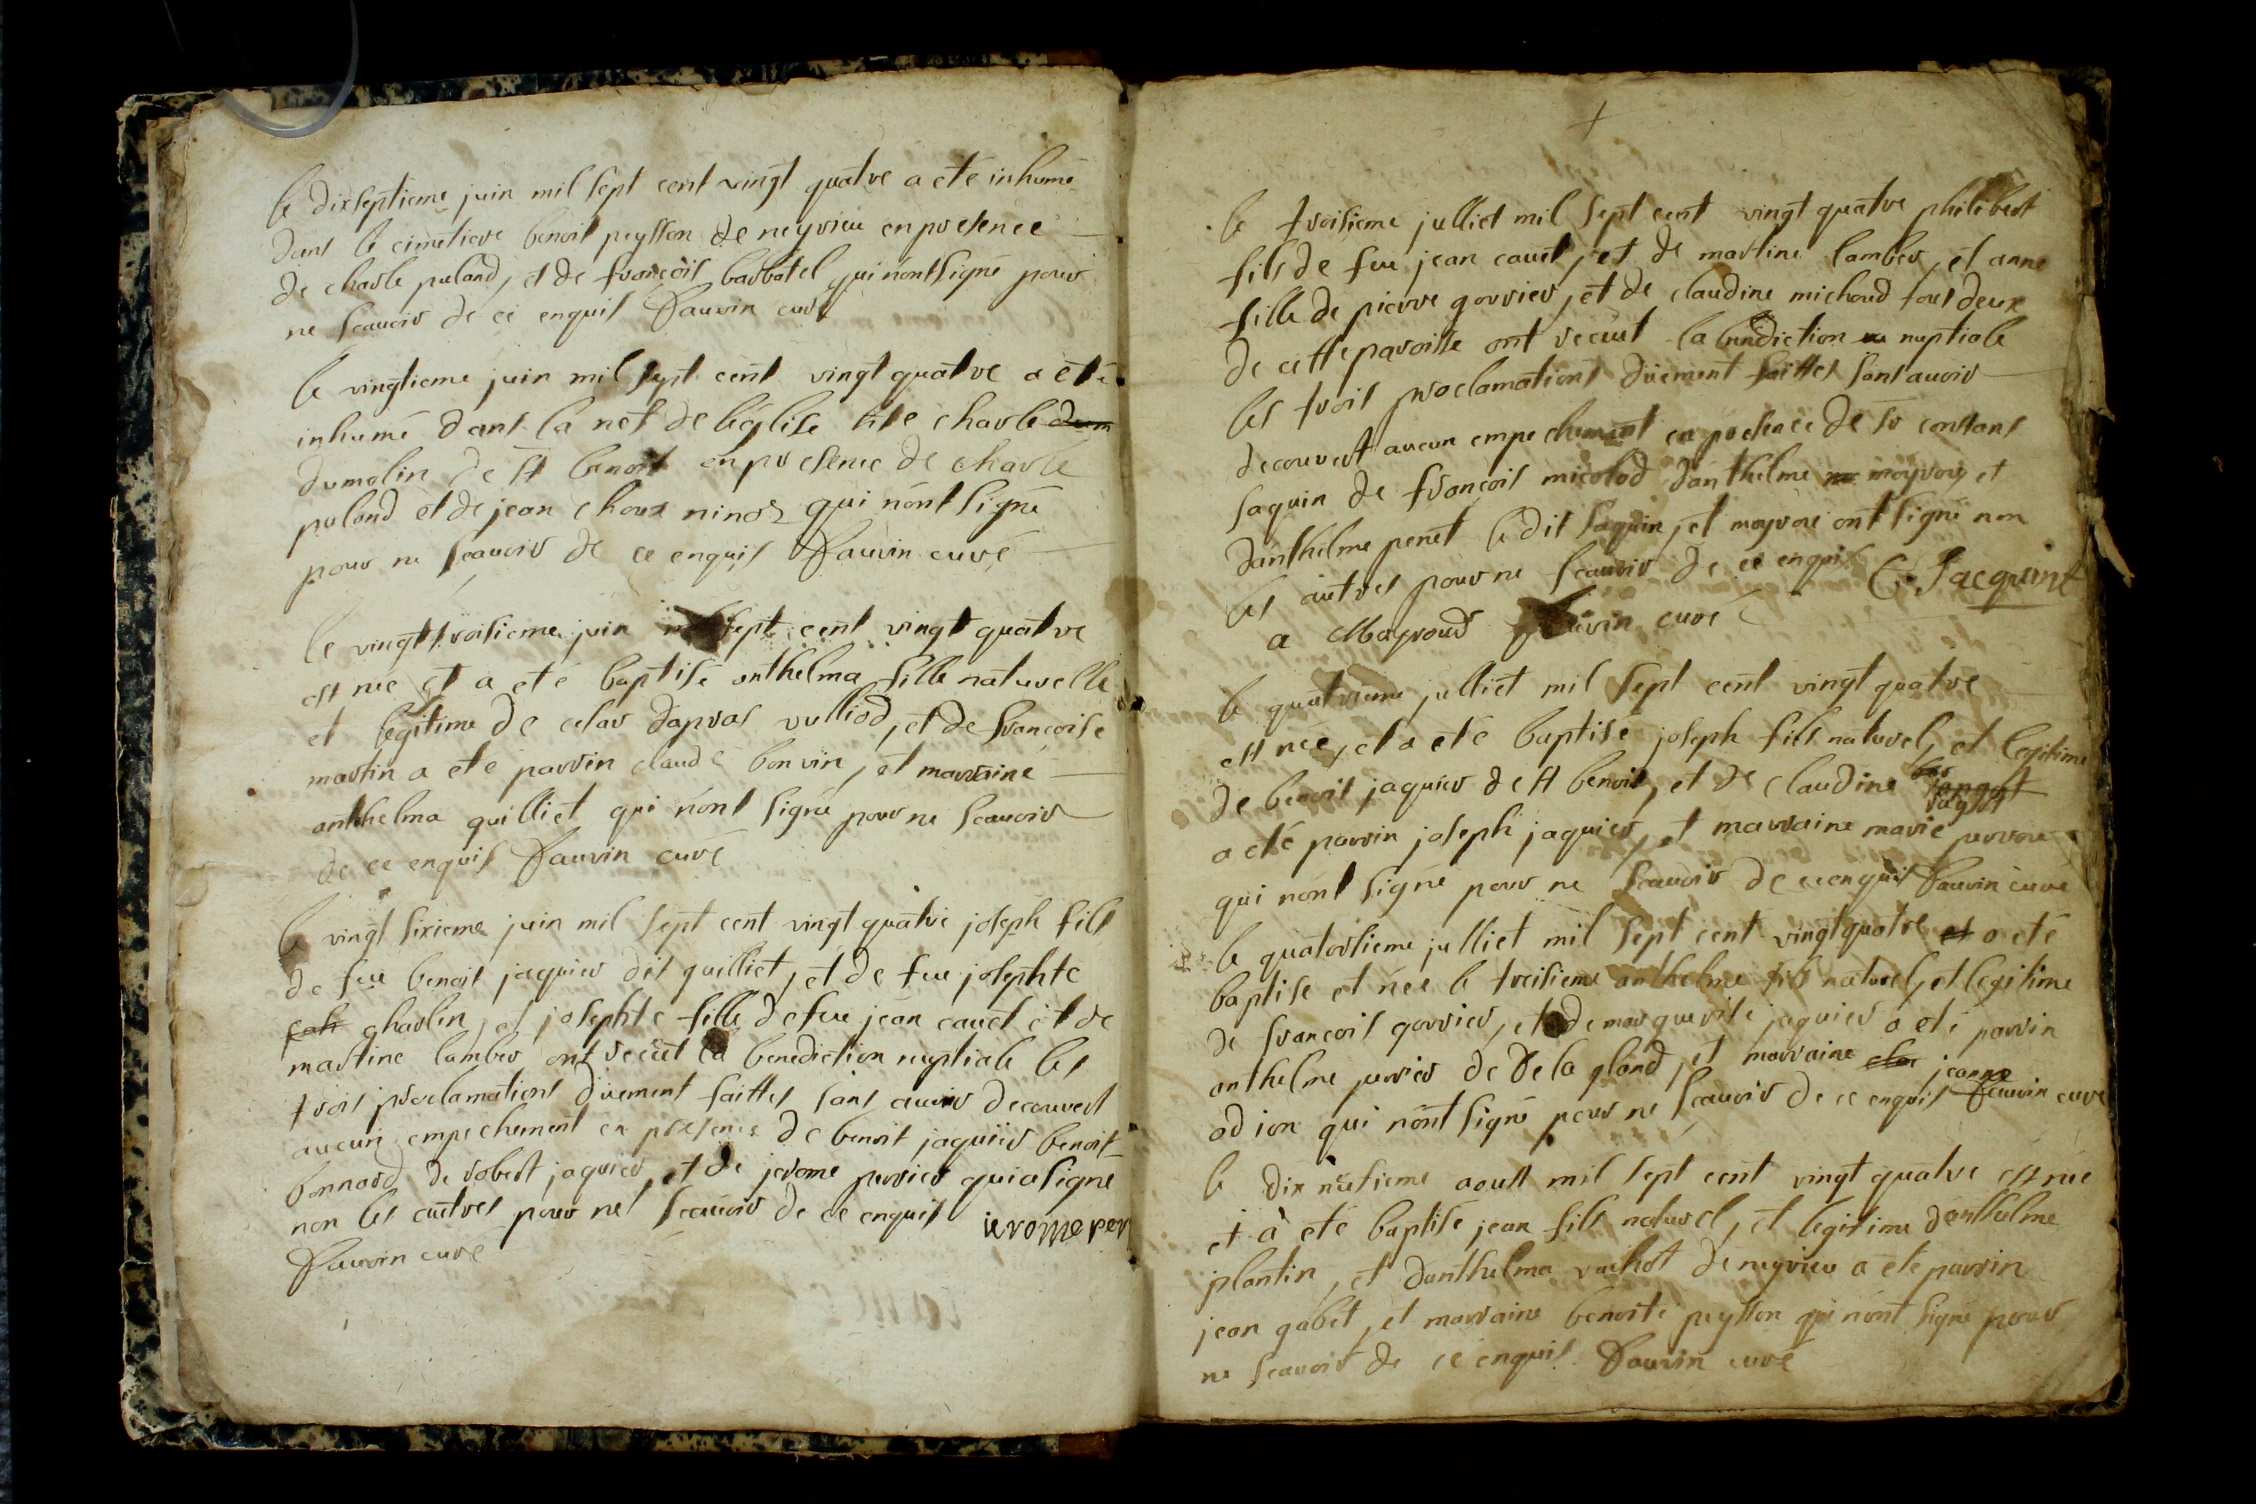 le dixseptieme juin mil sept cent vingt quatre a eté inhumé
dans le cimetiere benoit peysson de neyrieu en presence
de charle puland, et de francois barbotel qui nont signé pour
ne scauoir de ce enquis Dauvin curé
le vingtieme juin mil sept cent vingt quatre a eté
inhumé dans la nef de léglise charle
dumolin de st benoit en presence de charle
puland et de jean choux ninoz qui nont signé
pour ne scauoir de ce enquis Dauvin curé
le vingt troisieme juin mil sept cent vingt quatre
est nee et a eté baptisé anthelma fille naturelle
et legitime de vulliod, et de francoise
martin a eté parrin claude bonvin, et marraine
anthelma guilliet qui nont signé pour ne scauoir
de ce enquis Dauvin curé
le vingt sixieme juin mil sept cent vingt quatre joseph fils
de feu benoit jaquier dit guilliet, et de feu josephte
charlin, et josephte fille de feu jean cauet et de
martine lamber ont recüt la benediction nuptiale les
trois proclamations düement faittes sans auoir decouvert
aucun empechement en presence de benoit jaquier benoit
bonnard de robert jaquier, et de jerome perrier qui a signé
non les autres pour ne scauoir de ce enquis ierome per
Dauvin curé
le troisieme julliet mil sept cent vingt quatre philibert
fils de feu jean cauet, et de martine lamber, et anne
fille de pierre gorrier, et de claudine michoud tous deux
de cette paroisse ont recüt la benediction nuptiale
les trois proclamations düement faittes sans auoir
decouvert aucun empechement en presence de sr constans
jaquin de francois micolod danthelme mayrou et
danthelme penet le dit jaquin, et mayrou ont signé non
les autres pour ne scauoir de ce enquis C. Jacquint
a Mayroud Dauvin curé
le quatrieme julliet mil sept cent vingt quatre
est neé, et a eté baptisé joseph fils naturel, et legitime
de benoit jaquier de st benoit, et de claudine
a eté parrin joseph jaquier, et marraine marie
qui nont signé pour ne scauoir de ce enquis Dauvin curé
le quatorsieme julliet mil sept cent vingt quatre a eté
baptise et née le treisieme anthelme fils naturel, et legitime
de francois gorrier, et de marguerite jaquier a eté parrin
anthelme perrier de de la gland, et marraine jeanne
odion qui nont signé pour ne scauoir de ce enquis Dauvin curé
le dix nüfieme aoust mil sept cent vingt quatre est née
et a eté baptisé jean fils naturel, et legitime danthelme
plantin, et danthelma vachot de neyrieu a eté parrin
jean gabet, et marraine benoite peysson qui nont signé pour
ne scauoir de ce enquis Dauvin curé